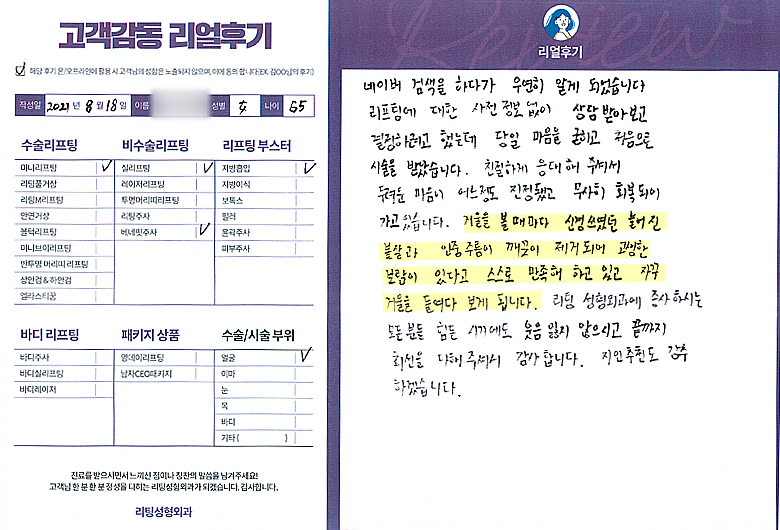 고객감동 리얼후기
해당 후기 온/오프라인에 활용 시 고객님의 성함은 노출되지 않으며, 이에 동의 합니다(EX. 김OO님의 후기)
작성일 2021년 8월 18일 이름 성별 女 나이 65
수술리프팅
미니리프팅
리팅풀거상
리팅M리프팅
안면거상
볼턱리프팅
미니브이리프팅
반투명 머리띠 리프팅
상안검 & 하안검
엘라스티꿈
비수술리프팅
실리프팅
레이저리프팅
투명머리띠리프팅
리팅주사
버네핏주사
리프팅 부스터
지방흡입
지방이식
보톡스
필러
윤곽주사
피부주사
바디 리프팅
바디주사
바디실리프팅
바디레이저
패키지 상품
영데이리프팅
남자CEO패키지
수술/시술 부위
얼굴
이마
눈
목
바디
기타 ( )
진료를 받으시면서 느끼신 점이나 칭찬의 말씀을 남겨주세요!
고객님 한 분 한 분 정성을 다하는 리팅성형외과가 되겠습니다. 감사합니다.
리팅성형외과
Review
리얼후기
네이버 검색을 하다가 우연히 알게 되었습니다
리프팅에 대한 사전 정보 없이 상담 받아보고
결정하려고 했는데 당일 마음을 굳히고 처음으로
시술을 받았습니다. 친절하게 응대해 주셔서
두려운 마음이 어느정도 진정됐고 무사히 회복되어
가고 있습니다. 거울을 볼 때마다 신경쓰였던 늘어진
볼살과 인중주름이 깨끗이 제거되어 고생한
보람이 있다고 스스로 만족해 하고 있고 자꾸
거울을 들여다 보게 됩니다. 리팅 성형외과에 종사하시는
모든분들 힘든 시기에도 웃음 잃지 않으시고 끝까지
최선을 다해 주셔서 감사합니다. 지인추천도 강추
하겠습니다.